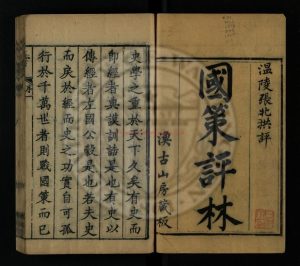 溫陵張兆洪評
國策評林
漢古山房藏板
史學之重於天下久矣有史而
即經者典謨訓誥是也有史以
傳經者左國公穀是也若夫史
而戾於經而史之功實自可孤
行於千萬世者則戰國策而已